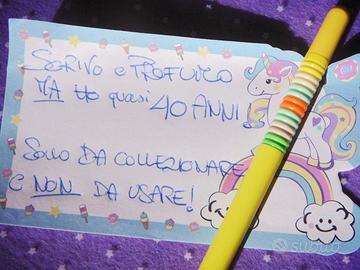 SCRIVO e PROFUMO
MA Ho quasi 40 ANNI!
SOLO DA COLLEZIONARE
E NON DA USARE!
subito